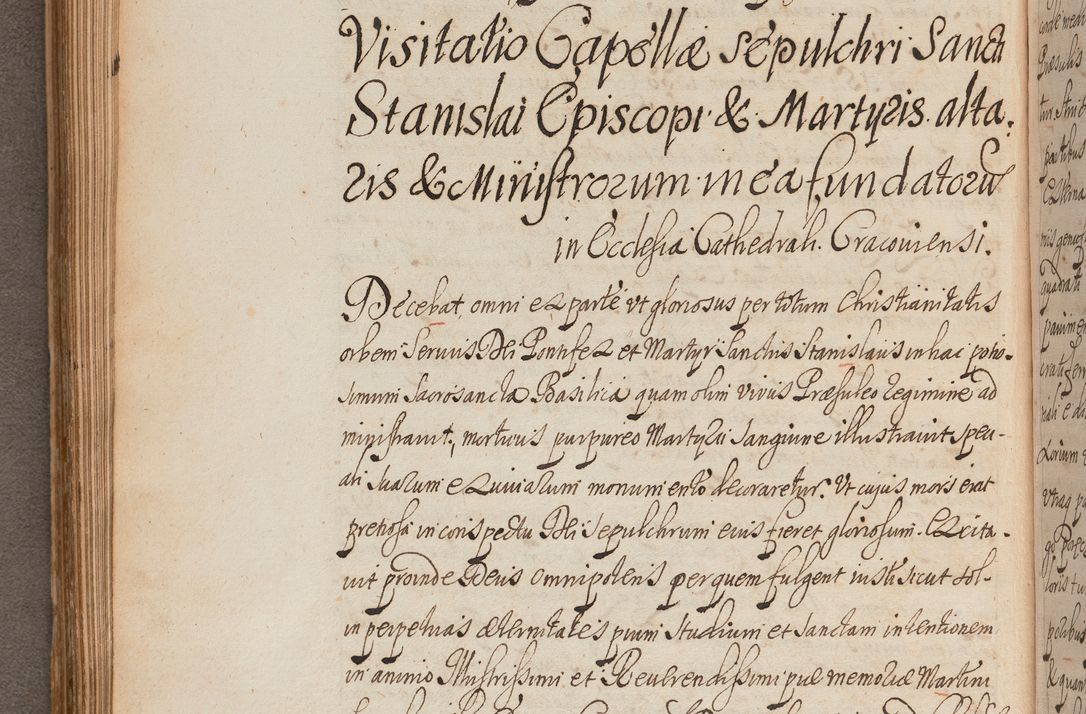 Visitatio Capellæ sepulchri Sancti
Stanislai Episcopi & Martyris alta-
ris & Ministrorum in ea fundatorū
in Ecclesia Cathedrali Cracouiensi.
Decebat omni ex parte vt gloriosus per totum Christianitatis
orbem Seruus Dei Pontifex et Martyr Sanctus Stanislaus in hac potis-
simum Sacrosancta Basilica quam olim viuus Præsuleo regimine ad
ministrauit, mortuus purpureo Martyrii sanguine illustrauit, specu-
ali suarum exuuiarum monumento decoraretur. Vt cujus mors erat
pretiosa in conspectu Dei sepulchrum eius fieret gloriosum. Excita-
uit proinde Deus omnipotens per quem fulgent iusti sicut sol
in perpetuas æternitates pium studium et sanctam intentionem
in animo Illustrissimi et Reuerendissimi piæ memoriæ Martini